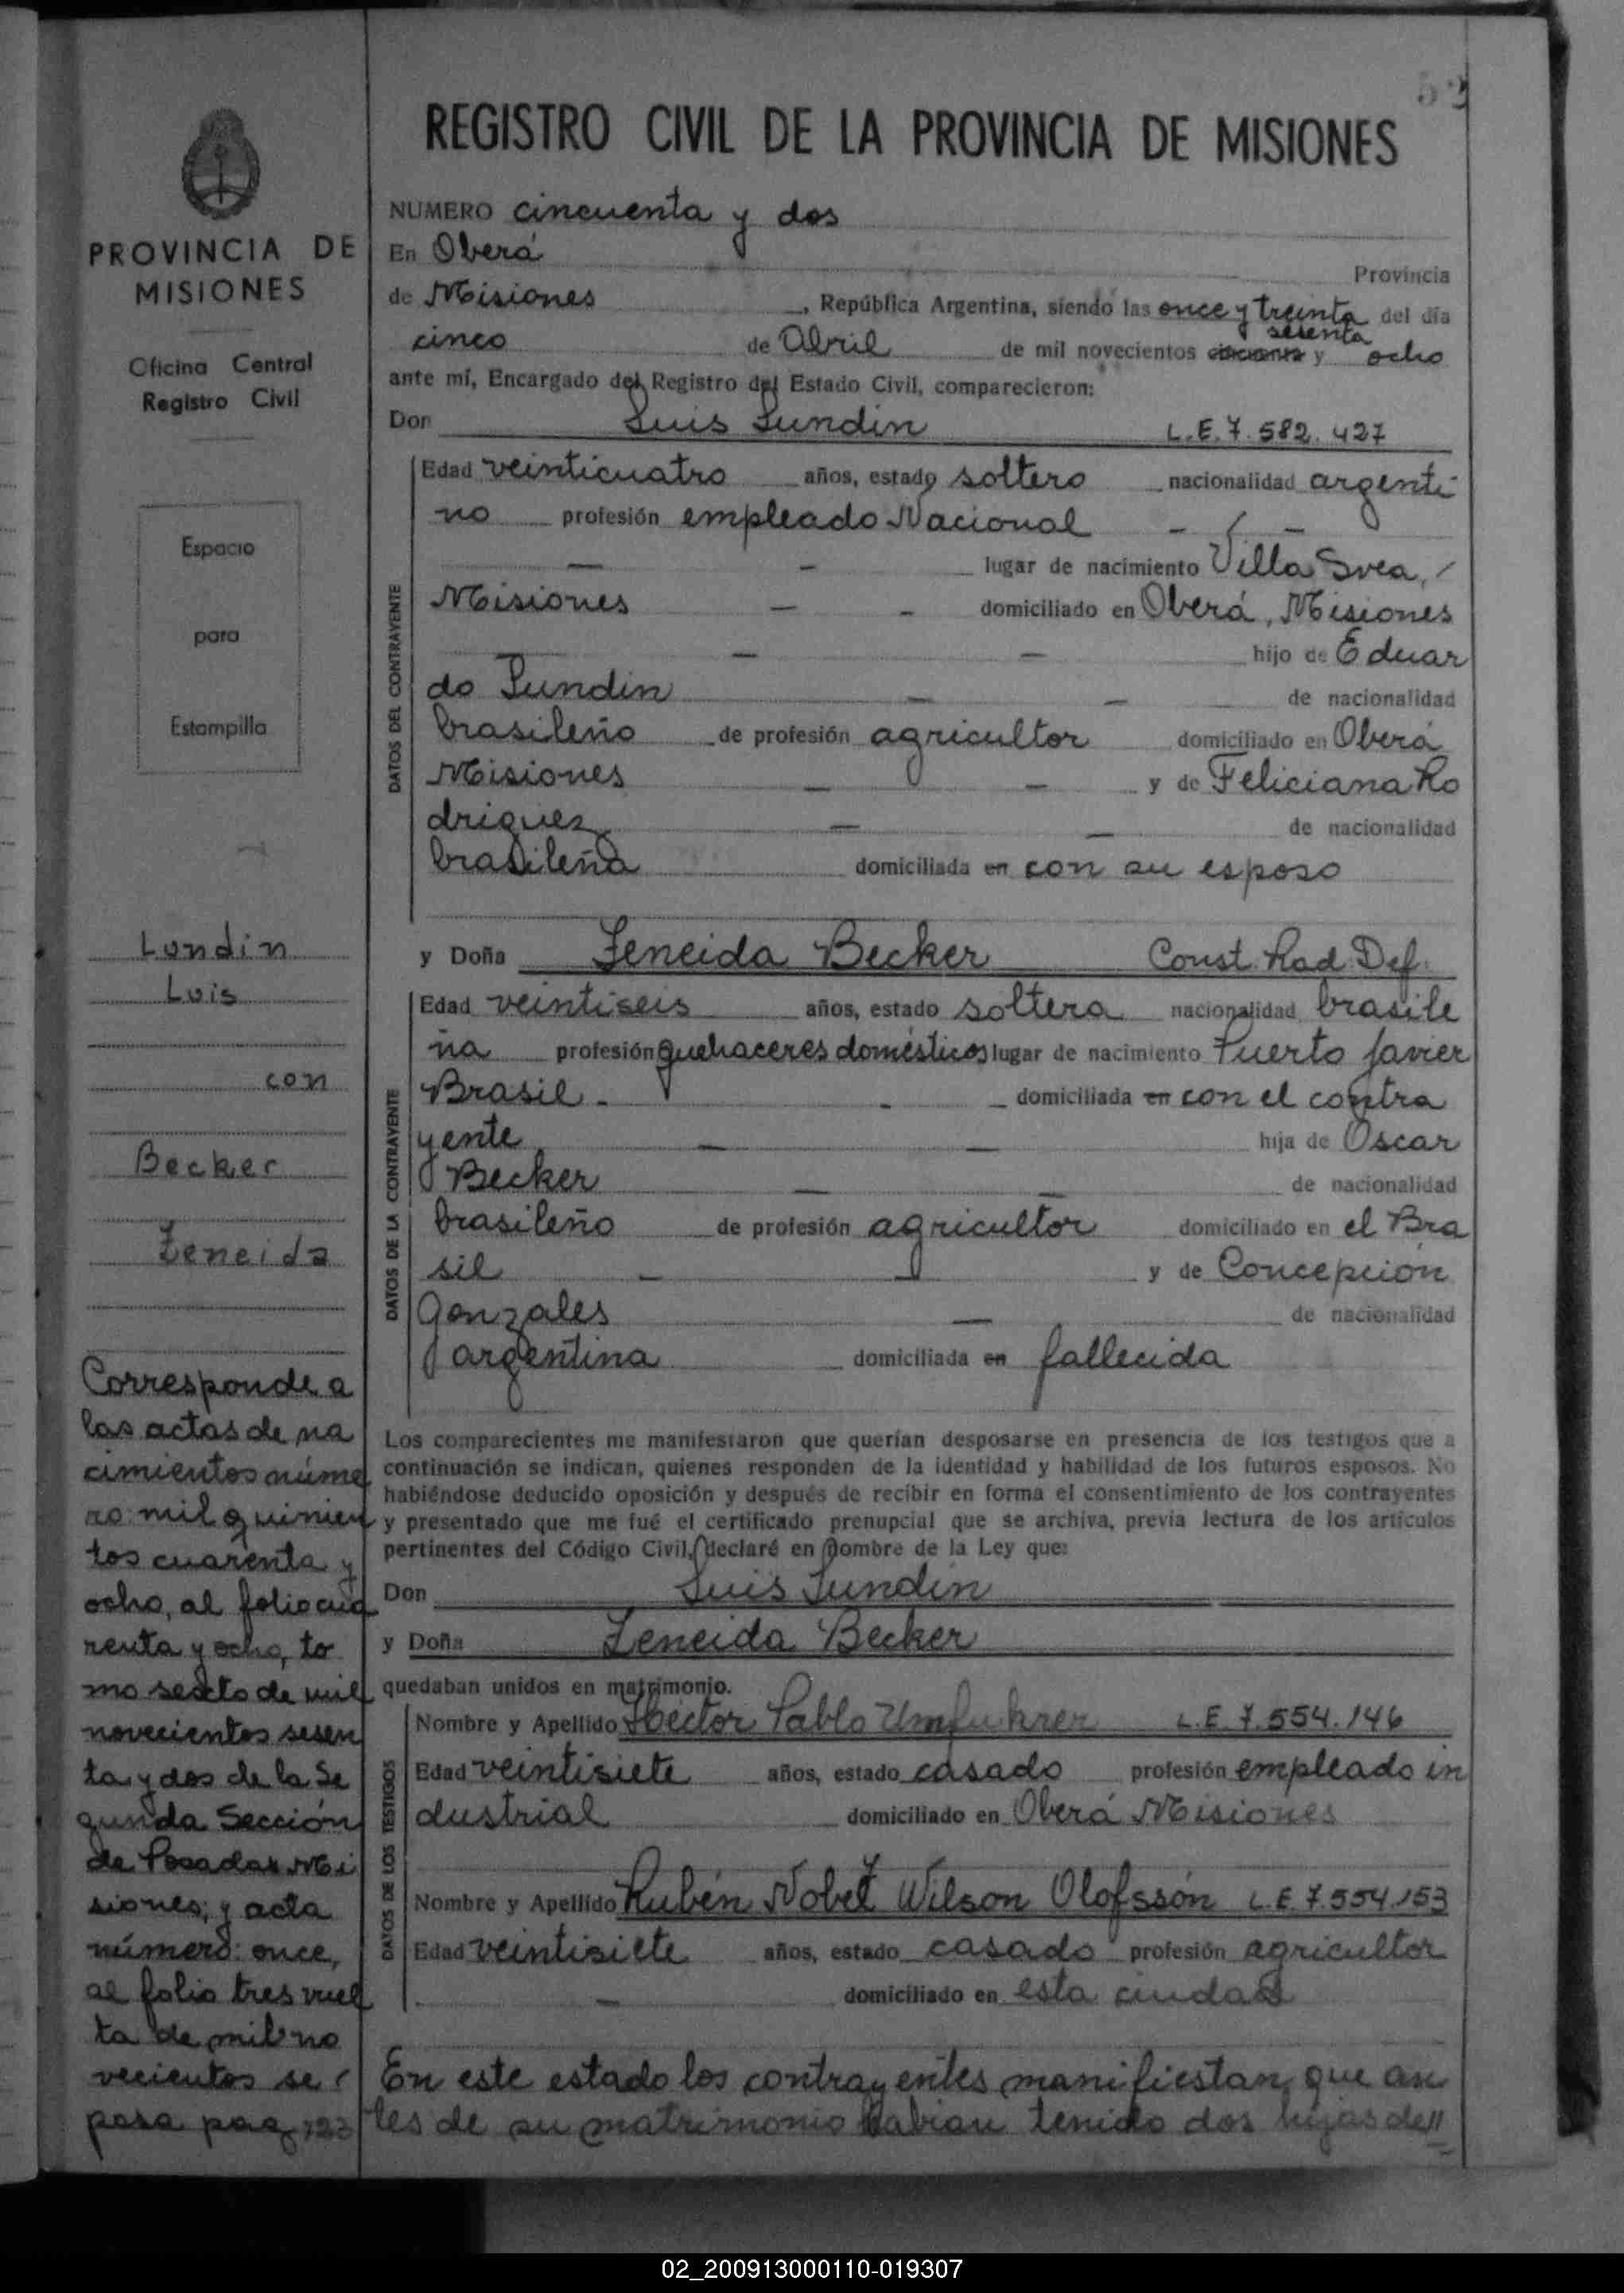 52
REGISTRO CIVIL DE LA PROVINCIA DE MISIONES
PROVINCIA DE
MISIONES
Oficina Central
Registro Civil
Espacio
para
Estampilla
Lundin
Luis
con
Becker
Zeneida
Corresponde a
las actas de na
cimientos núme
ro: mil quinien
tos cuarenta y
ocho, al folio cua
renta y ocho, to
mo sexto de mil
novecientos sesen
ta y dos de la Se
gunda Sección
de Posadas Mi
siones; y acta
número: once,
al folio tres vuel
ta de mil no
vecientos se
pasa pag 123
NUMERO cincuenta y dos
En Oberá Provincia
de Misiones, República Argentina, siendo las once y treinta del día
sesenta
cinco de Abril de mil novecientos cincuenta y ocho
ante mí, Encargado del Registro del Estado Civil, comparecieron:
Don Luis Lundin L.E. 7.582.427
DATOS DEL CONTRAYENTE
Edad veinticuatro años, estado soltero nacionalidad argenti
no profesión empleado Nacional
lugar de nacimiento Villa Svea,
Misiones domiciliado en Oberá, Misiones
hijo de Eduar
do Lundin de nacionalidad
brasileño de profesión agricultor domiciliado en Oberá
Misiones y de Feliciana Ro
driguez de nacionalidad
brasileña domiciliada en con su esposo
y Doña Zeneida Becker Const. Rad. Def.
DATOS DE LA CONTRAYENTE
Edad veintiseis años, estado soltera nacionalidad brasile
ña profesión quehaceres domésticos lugar de nacimiento Puerto Javier
Brasil - domiciliada en con el contra
yente hija de Oscar
Becker de nacionalidad
brasileño de profesión agricultor domiciliado en el Bra
sil y de Concepción
Gonzales de nacionalidad
argentina domiciliada en fallecida
Los comparecientes me manifestaron que querían desposarse en presencia de los testigos que a
continuación se indican, quienes responden de la identidad y habilidad de los futuros esposos. No
habiéndose deducido oposición y después de recibir en forma el consentimiento de los contrayentes
y presentado que me fué el certificado prenupcial que se archiva, previa lectura de los artículos
pertinentes del Código Civil, declaré en nombre de la Ley que:
Don Luis Lundin
y Doña Zeneida Becker
quedaban unidos en matrimonio.
DATOS DE LOS TESTIGOS
Nombre y Apellido Héctor Pablo Umfuhrer L.E. 7.554.146
Edad veintisiete años, estado casado profesión empleado in
dustrial domiciliado en Oberá Misiones
Nombre y Apellido Rubén Nobel Wilson Olofssón L.E. 7.554.153
Edad veintisiete años, estado casado profesión agricultor
domiciliado en esta ciudad
En este estado los contrayentes manifiestan que an
tes de su matrimonio habian tenido dos hijas de//
02_200913000110-019307